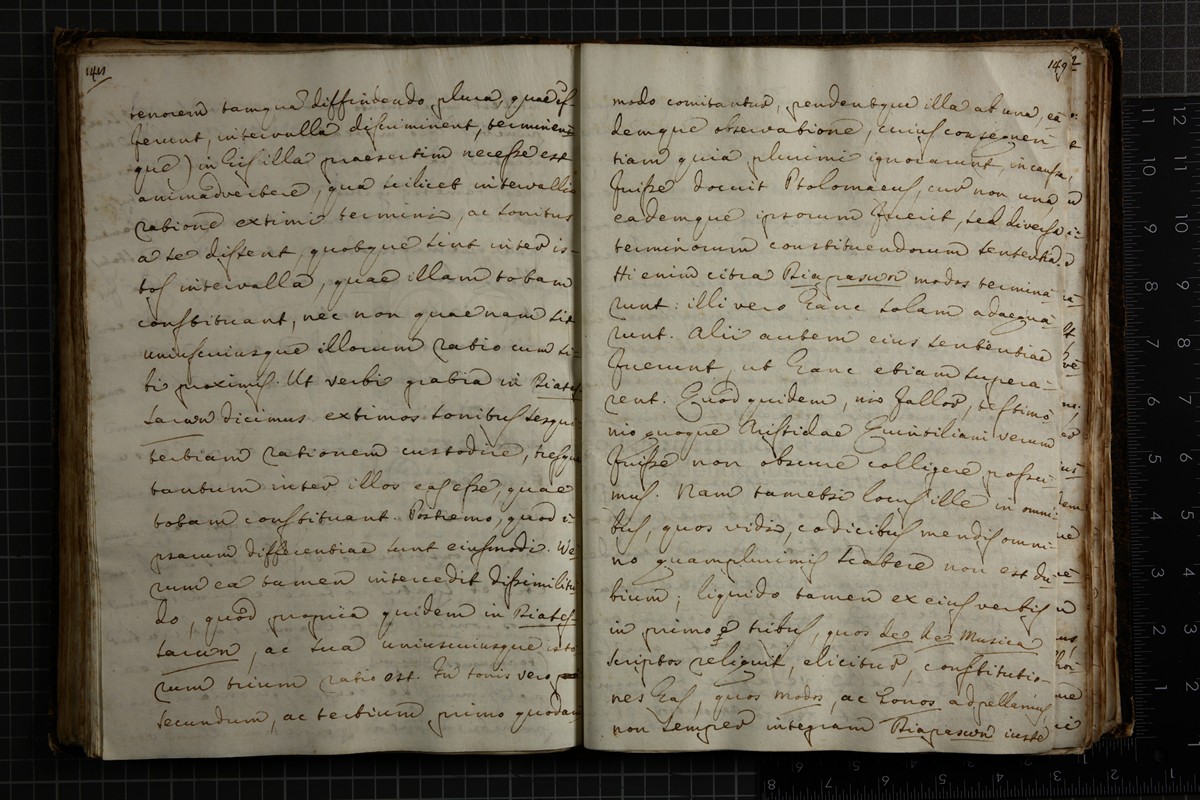 tenorem tamquā diffindendo plura, quae if
ferunt, intervalla discriminent, terminent
que) in his illa praesertim necesse est
animadvertere, quā scilicet intervalli
ratione extimi termini, ac sonitus
a se distent, quotque sint inter is-
tos intervalla, quae illam totam
constituant, nec non quaenam sit
uniuscuiusque illorum ratio cum si-
bi proximis. Ut verbi gratia in Diates
saron dicimus extimos sonitus sesqui
tertiam rationem custodire, tresque
tantum inter illos eas esse, quae
totam constituant. Postremo, quod i
psarum differentiae sunt eiusmodi. Ve
rum ea tamen intercedit dissimilitu
do, quòd propria quidem in Diates-
saron, ac sua uniuscuiusque isto
rum trium ratio est. In tonis vero
secundum, ac tertium primo quodam
149
modo comitantur, pendentque illa ab una, eā
demque observatione, cuius consequen-
tiam quia plurimi ignorarunt, in causa,
fuisse docuit Ptolomaeus, cur non una,
eademque ipsorum fuerit, sed diversa
terminorum constituendorum sententia.
Hi enim citra Diapason modos termina
runt: illi vero hanc solam adaequa
runt. Alii autem eius sententiae
fuerunt, ut hanc etiam supera-
rent. Quòd quidem, nisi fallor, testimo
nio quoque Aristidae Quintiliani verum
fuisse non obscure colligere possu-
mus. Nam tametsi locus ille in omni-
bus, quos vidi, codicibus mendis omni-
no quamplurimis scatere non est du
bium; liquido tamen ex eius verbis
in primo è tribus, quos de Re Musica
scriptos reliquit, elicitur, constitutio-
nes has, quos modos, ac tonos adpellamus,
non semper integram Diapason iuste